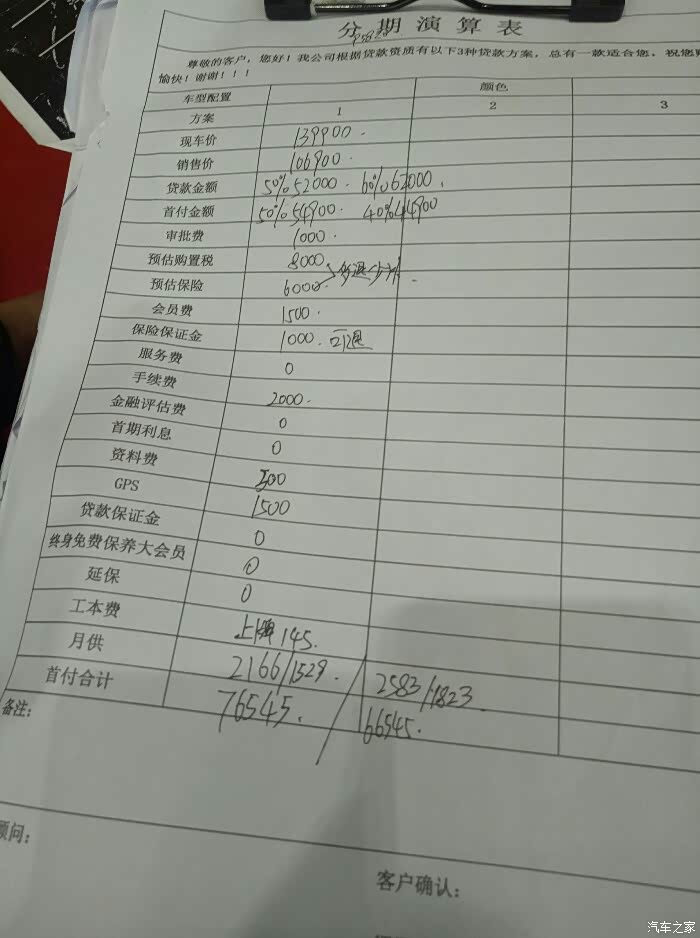 分期演算表
尊敬的客户，您好！我公司根据贷款资质有以下3种贷款方案，总有一款适合您，祝您
愉快！谢谢！！！
车型配置 颜色
方案 1 2 3
现车价 139900.
销售价 106900.
贷款金额 50%52000. 60%62000.
首付金额 50%54900. 40%44900
审批费 1000.
预估购置税 8000
预估保险 6000 多退少补.
会员费 1500.
保险保证金 1000. 可退
服务费 0
手续费 2000.
金融评估费 0
首期利息 0
资料费 300
GPS 1500
贷款保证金 0
终身免费保养大会员 0
延保 0
工本费 上牌145.
月供 2166/1529. 2583/1823.
首付合计 76545. 66545.
备注：
顾问：
客户确认：
汽车之家